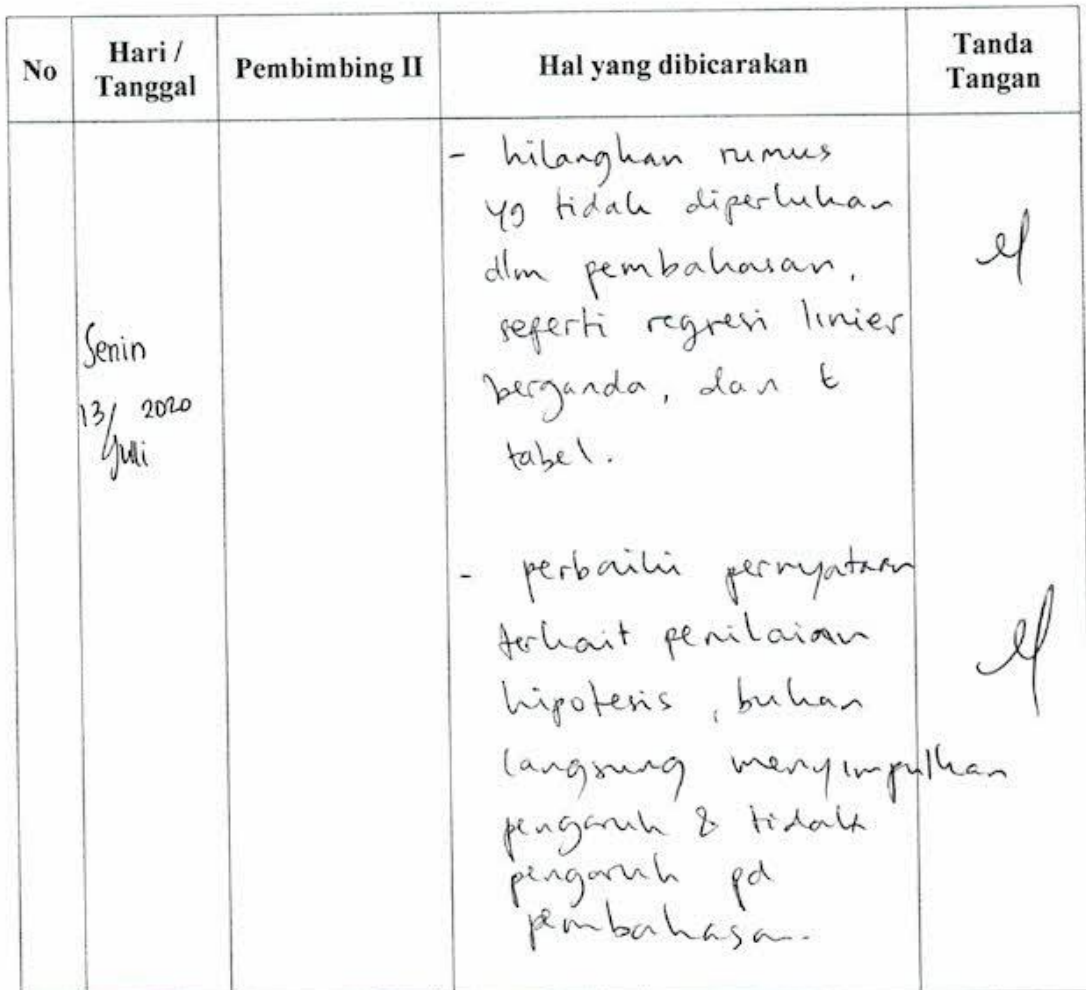 No
Hari /
Tanggal
Pembimbing II
Hal yang dibicarakan
Tanda
Tangan
Senin
13/ 2020
Juli
- hilangkan rumus
yg tidak diperlukan
dlm pembahasan,
seperti regresi linier
berganda, dan t
tabel.
- perbaiki pernyataan
terkait penilaian
hipotesis, bukan
langsung menyimpulkan
pengaruh & tidak
pengaruh pd
pembahasan.